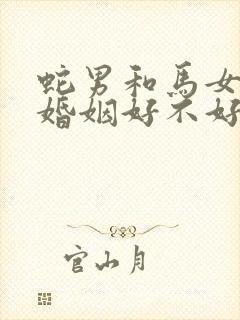 蛇男和馬女
婚姻好不好
官山月